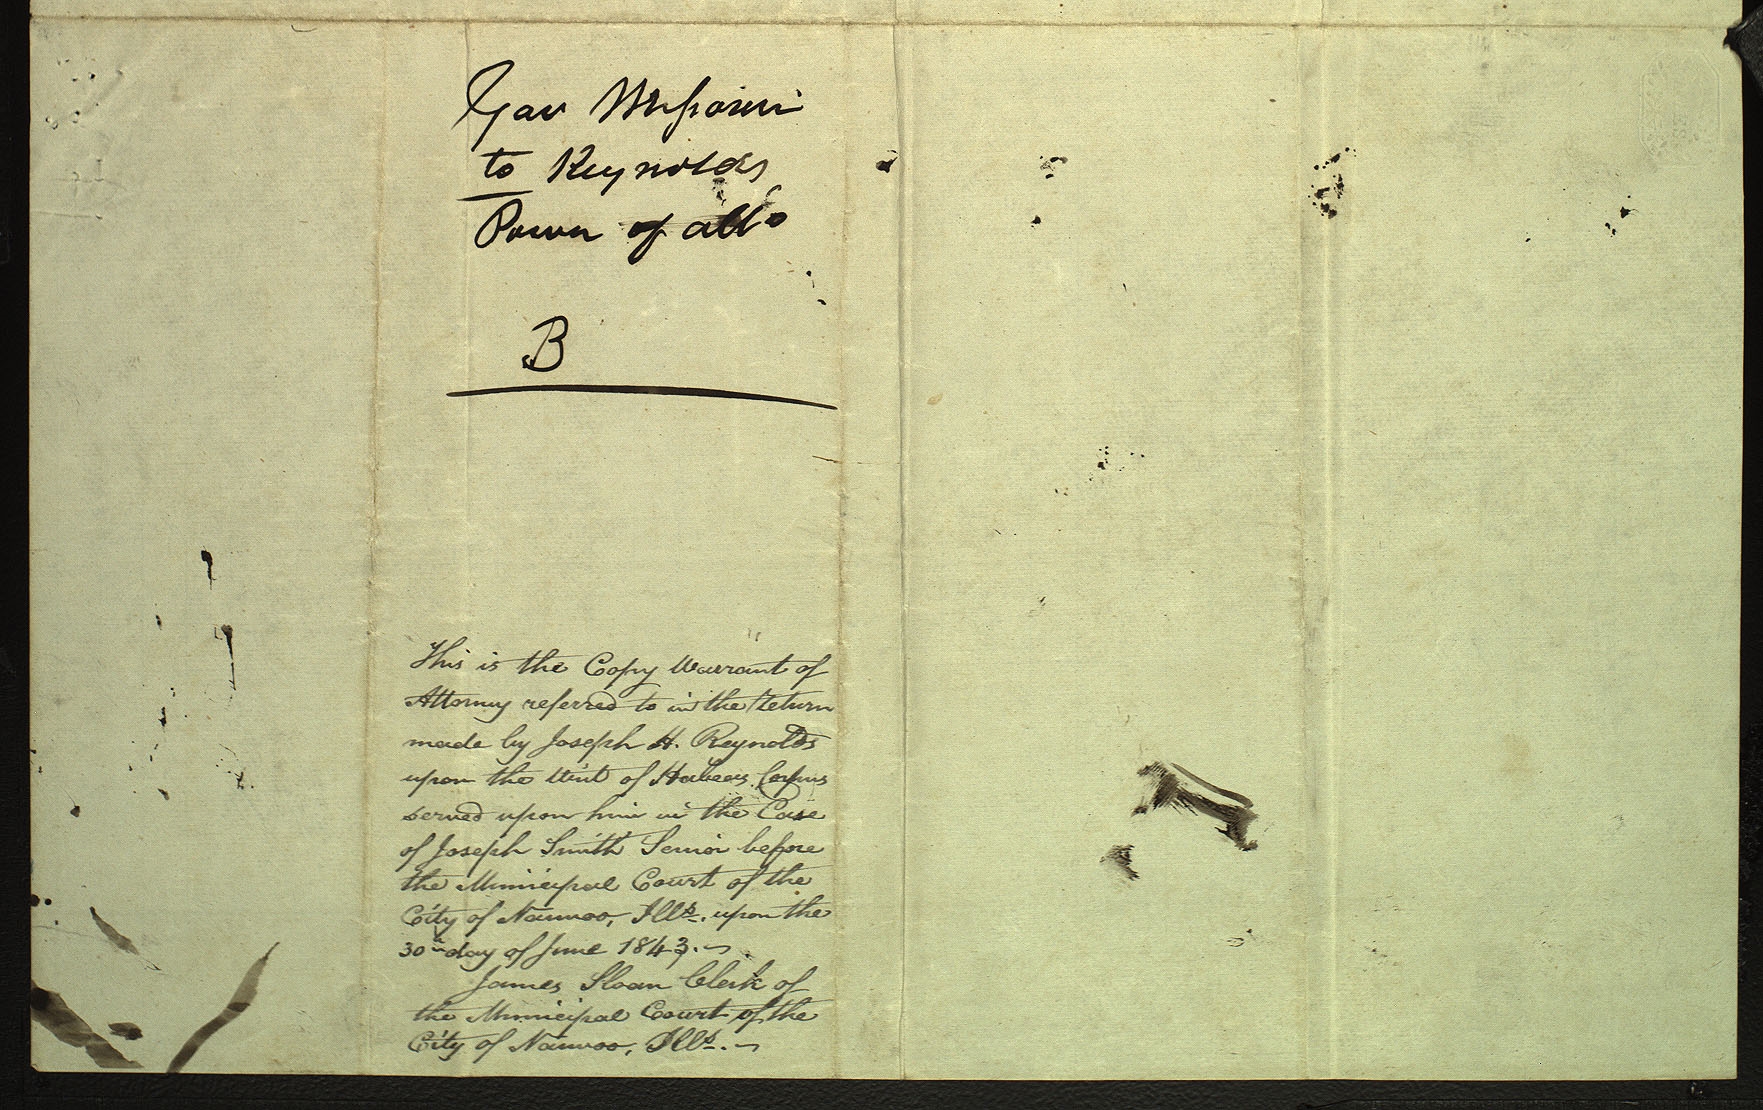 Gov Missouri
to Reynolds
Power of atto
B
This is the Copy Warrant of
Attorney referred to in the Return
made by Joseph H. Reynolds
upon the Writ of Habeas Corpus
served upon him in the Case
of Joseph Smith Senior before
the Municipal Court of the
City of Nauvoo, Ills. upon the
30th day of June 1843.
James Sloan Clerk of
the Municipal Court of the
City of Nauvoo, Ills.